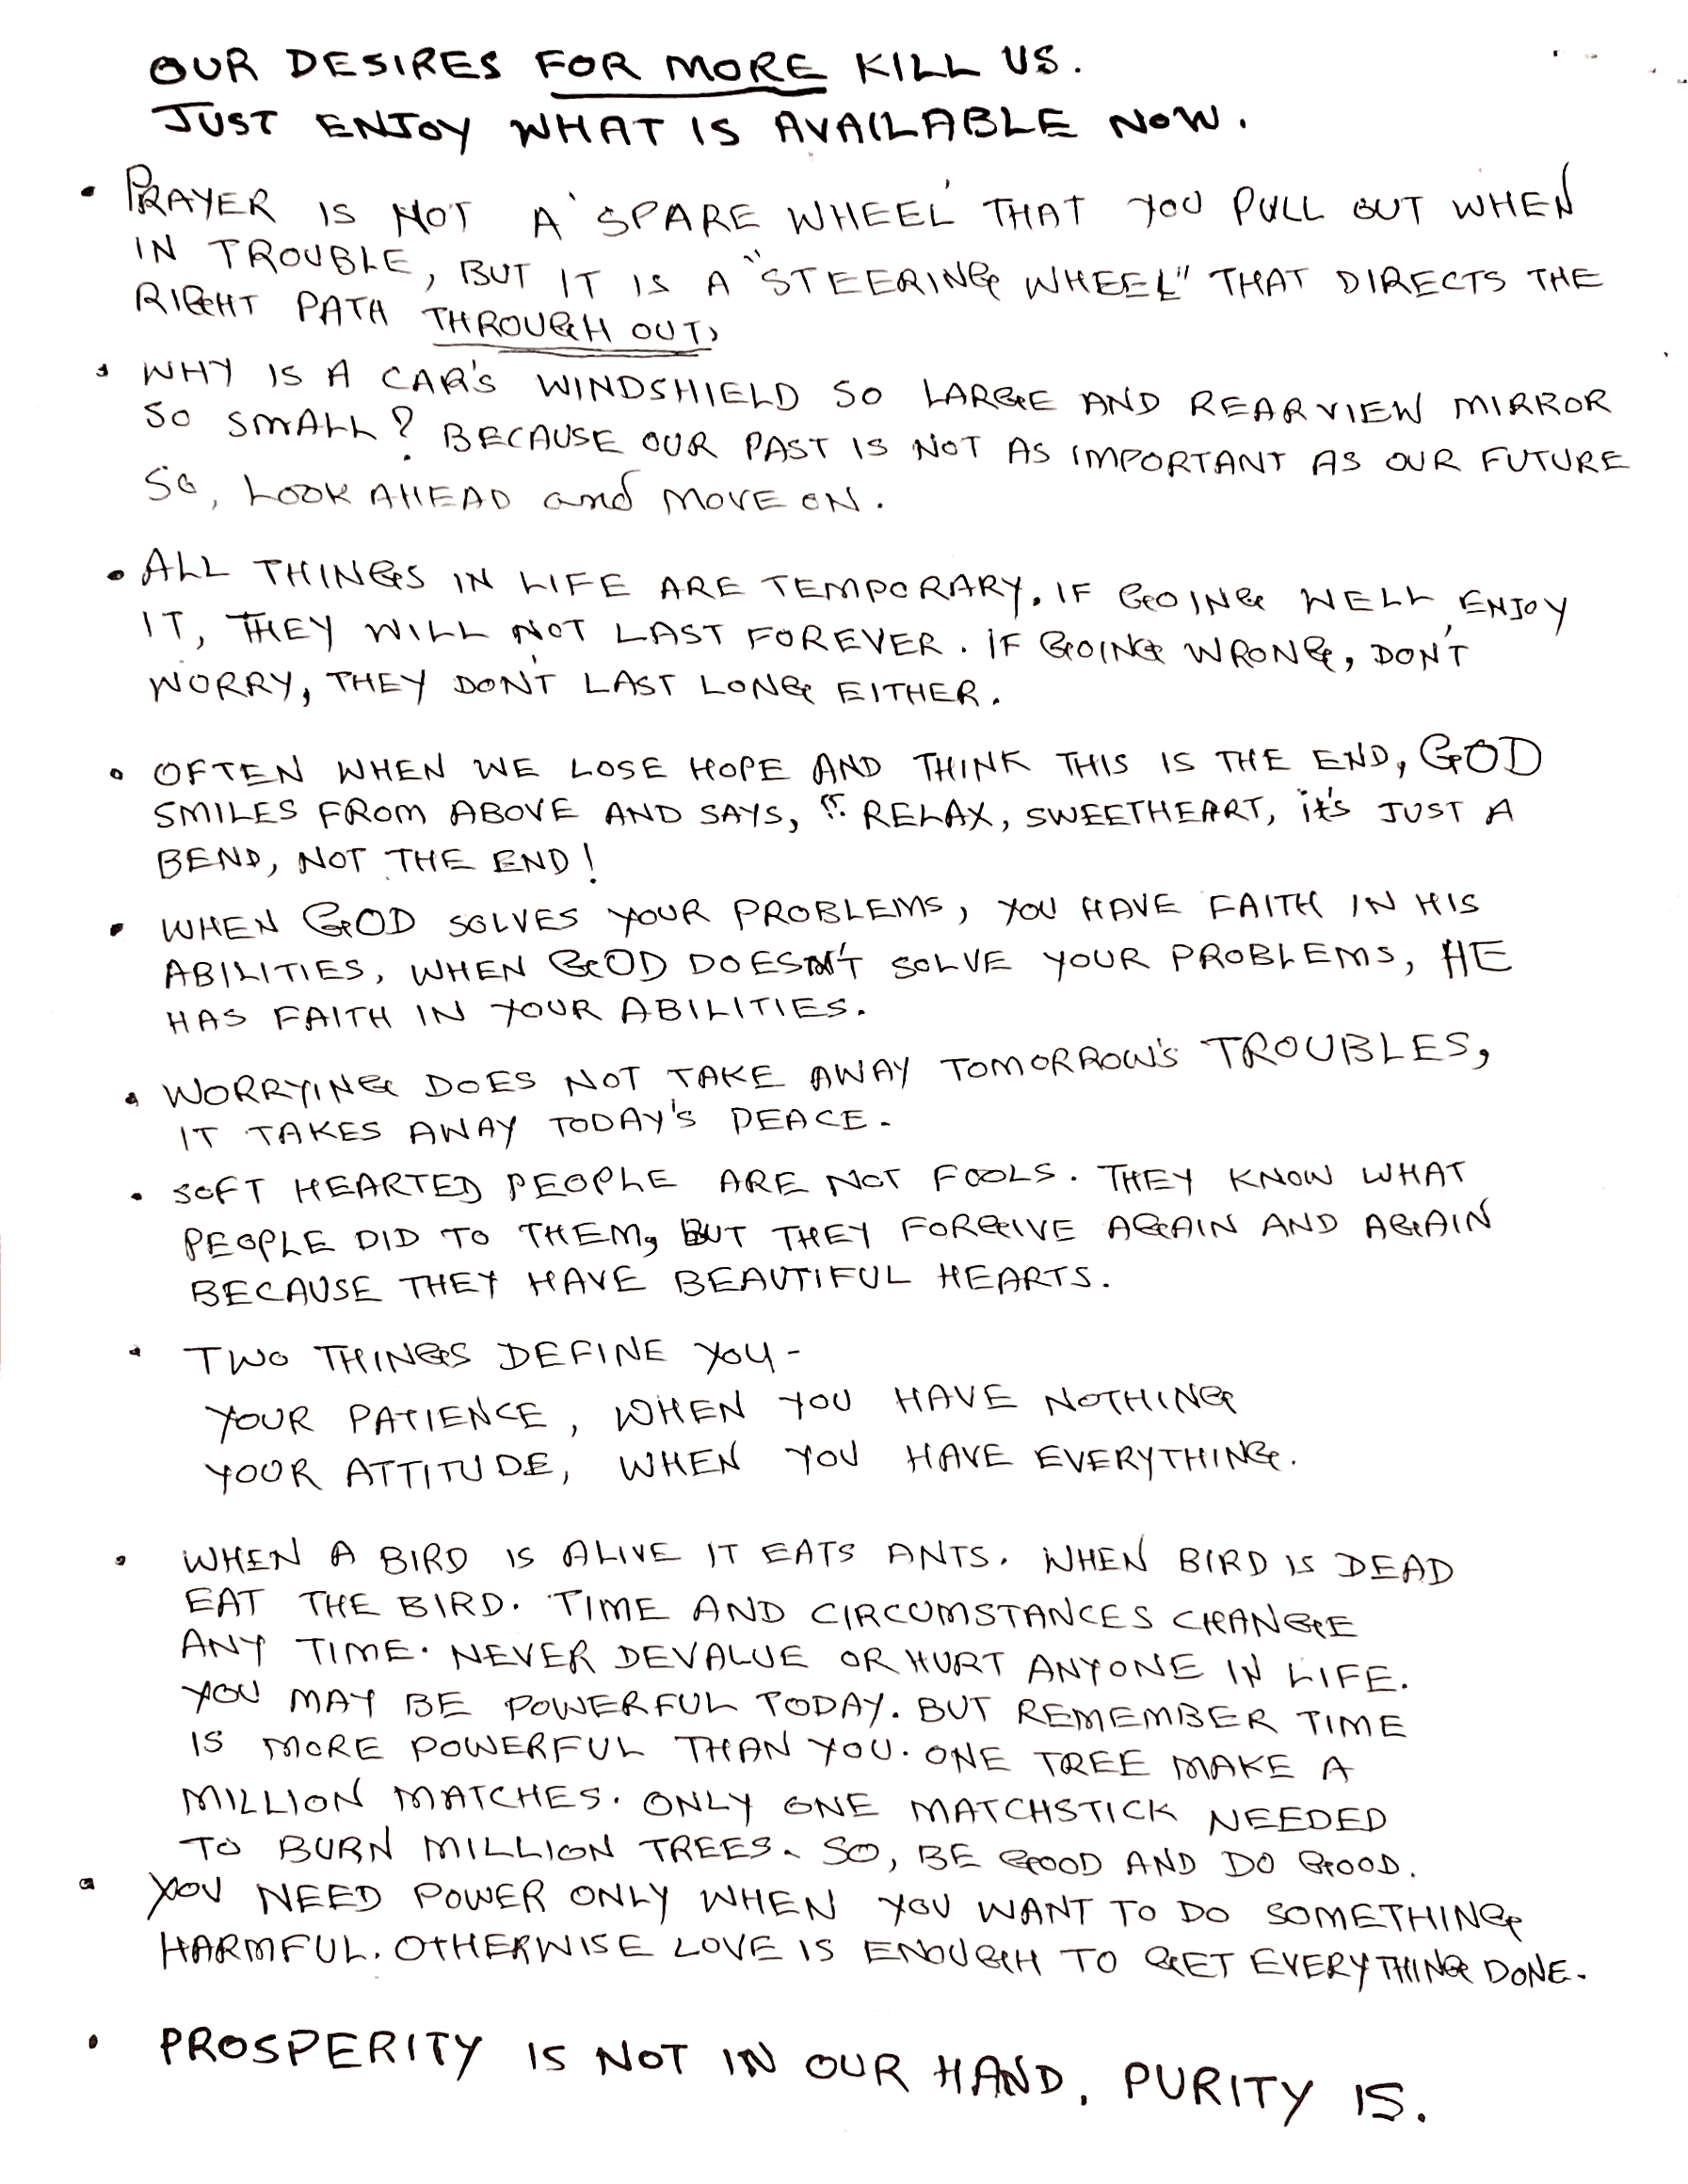 OUR DESIRES FOR MORE KILL US.
JUST ENJOY WHAT IS AVAILABLE NOW.
• PRAYER IS NOT A 'SPARE WHEEL' THAT YOU PULL OUT WHEN
IN TROUBLE, BUT IT IS A "STEERING WHEEL" THAT DIRECTS THE
RIGHT PATH THROUGH OUT.
• WHY IS A CAR'S WINDSHIELD SO LARGE AND REARVIEW MIRROR
SO SMALL? BECAUSE OUR PAST IS NOT AS IMPORTANT AS OUR FUTURE
SO, LOOK AHEAD and MOVE ON.
• ALL THINGS IN LIFE ARE TEMPORARY. IF GOING WELL, ENJOY
IT, THEY WILL NOT LAST FOREVER. IF GOING WRONG, DON'T
WORRY, THEY DON'T LAST LONG EITHER.
• OFTEN WHEN WE LOSE HOPE AND THINK THIS IS THE END, GOD
SMILES FROM ABOVE AND SAYS, ". RELAX, SWEETHEART, it's JUST A
BEND, NOT THE END!
• WHEN GOD SOLVES YOUR PROBLEMS, YOU HAVE FAITH IN HIS
ABILITIES, WHEN GOD DOESN'T SOLVE YOUR PROBLEMS, HE
HAS FAITH IN YOUR ABILITIES.
• WORRYING DOES NOT TAKE AWAY TOMORROW'S TROUBLES,
IT TAKES AWAY TODAY'S PEACE.
• SOFT HEARTED PEOPLE ARE NOT FOOLS. THEY KNOW WHAT
PEOPLE DID TO THEM, BUT THEY FORGIVE AGAIN AND AGAIN
BECAUSE THEY HAVE BEAUTIFUL HEARTS.
• TWO THINGS DEFINE YOU -
YOUR PATIENCE, WHEN YOU HAVE NOTHING
YOUR ATTITUDE, WHEN YOU HAVE EVERYTHING.
• WHEN A BIRD IS ALIVE IT EATS ANTS. WHEN BIRD IS DEAD
EAT THE BIRD. TIME AND CIRCUMSTANCES CHANGE
ANY TIME. NEVER DEVALUE OR HURT ANYONE IN LIFE.
YOU MAY BE POWERFUL TODAY. BUT REMEMBER TIME
IS MORE POWERFUL THAN YOU. ONE TREE MAKE A
MILLION MATCHES. ONLY ONE MATCHSTICK NEEDED
TO BURN MILLION TREES. SO, BE GOOD AND DO GOOD.
• YOU NEED POWER ONLY WHEN YOU WANT TO DO SOMETHING
HARMFUL. OTHERWISE LOVE IS ENOUGH TO GET EVERYTHING DONE.
• PROSPERITY IS NOT IN OUR HAND, PURITY IS.